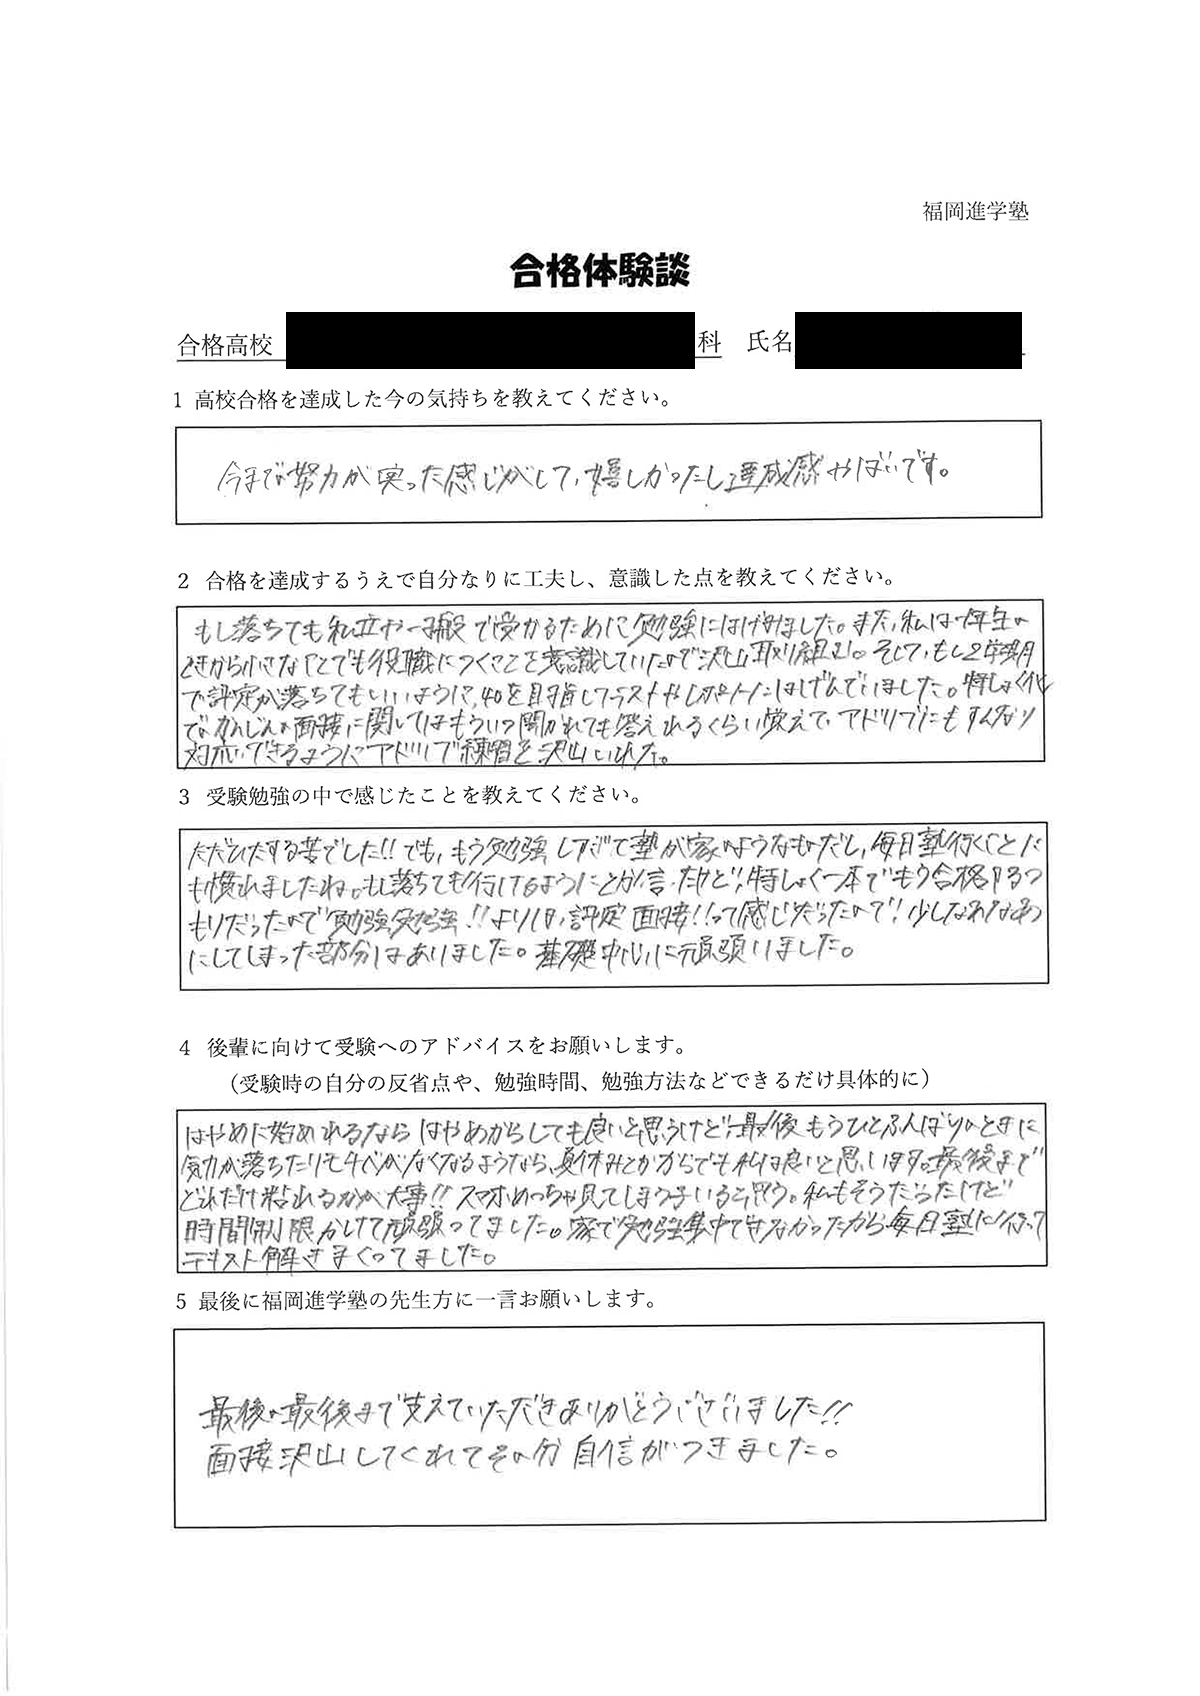 福岡進学塾
合格体験談
合格高校 科 氏名
1 高校合格を達成した今の気持ちを教えてください。
今まで努力が実った感じがして、嬉しかったし達成感やばいです。
2 合格を達成するうえで自分なりに工夫し、意識した点を教えてください。
もし落ちても私立や一般で受かるために勉強にはげみました。また、私は一年生の
ときから小さなことでも役職につくことを意識していたので沢山取り組む。そして、もし2学期
で評定が落ちてもいいように、40を目指してテストやレポートにはげんでいました。特しょく化
でかんじんな面接に関してはもういつ聞かれても答えれるくらい覚えて、アドリブにもすんなり
対応できるようにアドリブ練習を沢山いれた。
3 受験勉強の中で感じたことを教えてください。
ただひたする苦でした!! でも、もう勉強しすぎて塾が家のようなものだし、毎日塾行くことに
も慣れましたね。もし落ちても行けるようにとか言ったけど、特しょく一本でもう合格するつ
もりだったので勉強勉強!!よりは、評定面接!!って感じだったので、少しなあなあ
にしてしまった部分はありました。基礎中心に頑張りました。
4 後輩に向けて受験へのアドバイスをお願いします。
（受験時の自分の反省点や、勉強時間、勉強方法などできるだけ具体的に）
はやめに始めれるならはやめからしても良いと思うけど、最後もうひとふんばりのときに
気力が落ちたりモチベがなくなるようなら、夏休みとかからでも私は良いと思います。最後まで
どれだけ粘れるかが大事!! スマホめっちゃ見てしまう子いると思う。私もそうだったけど
時間制限かして頑張ってました。家で勉強集中できなかったから毎日塾に行って
テキスト解きまくってました。
5 最後に福岡進学塾の先生方に一言お願いします。
最後の最後まで支えていただきありがとうございました!!
面接沢山してくれてその分自信がつきました。